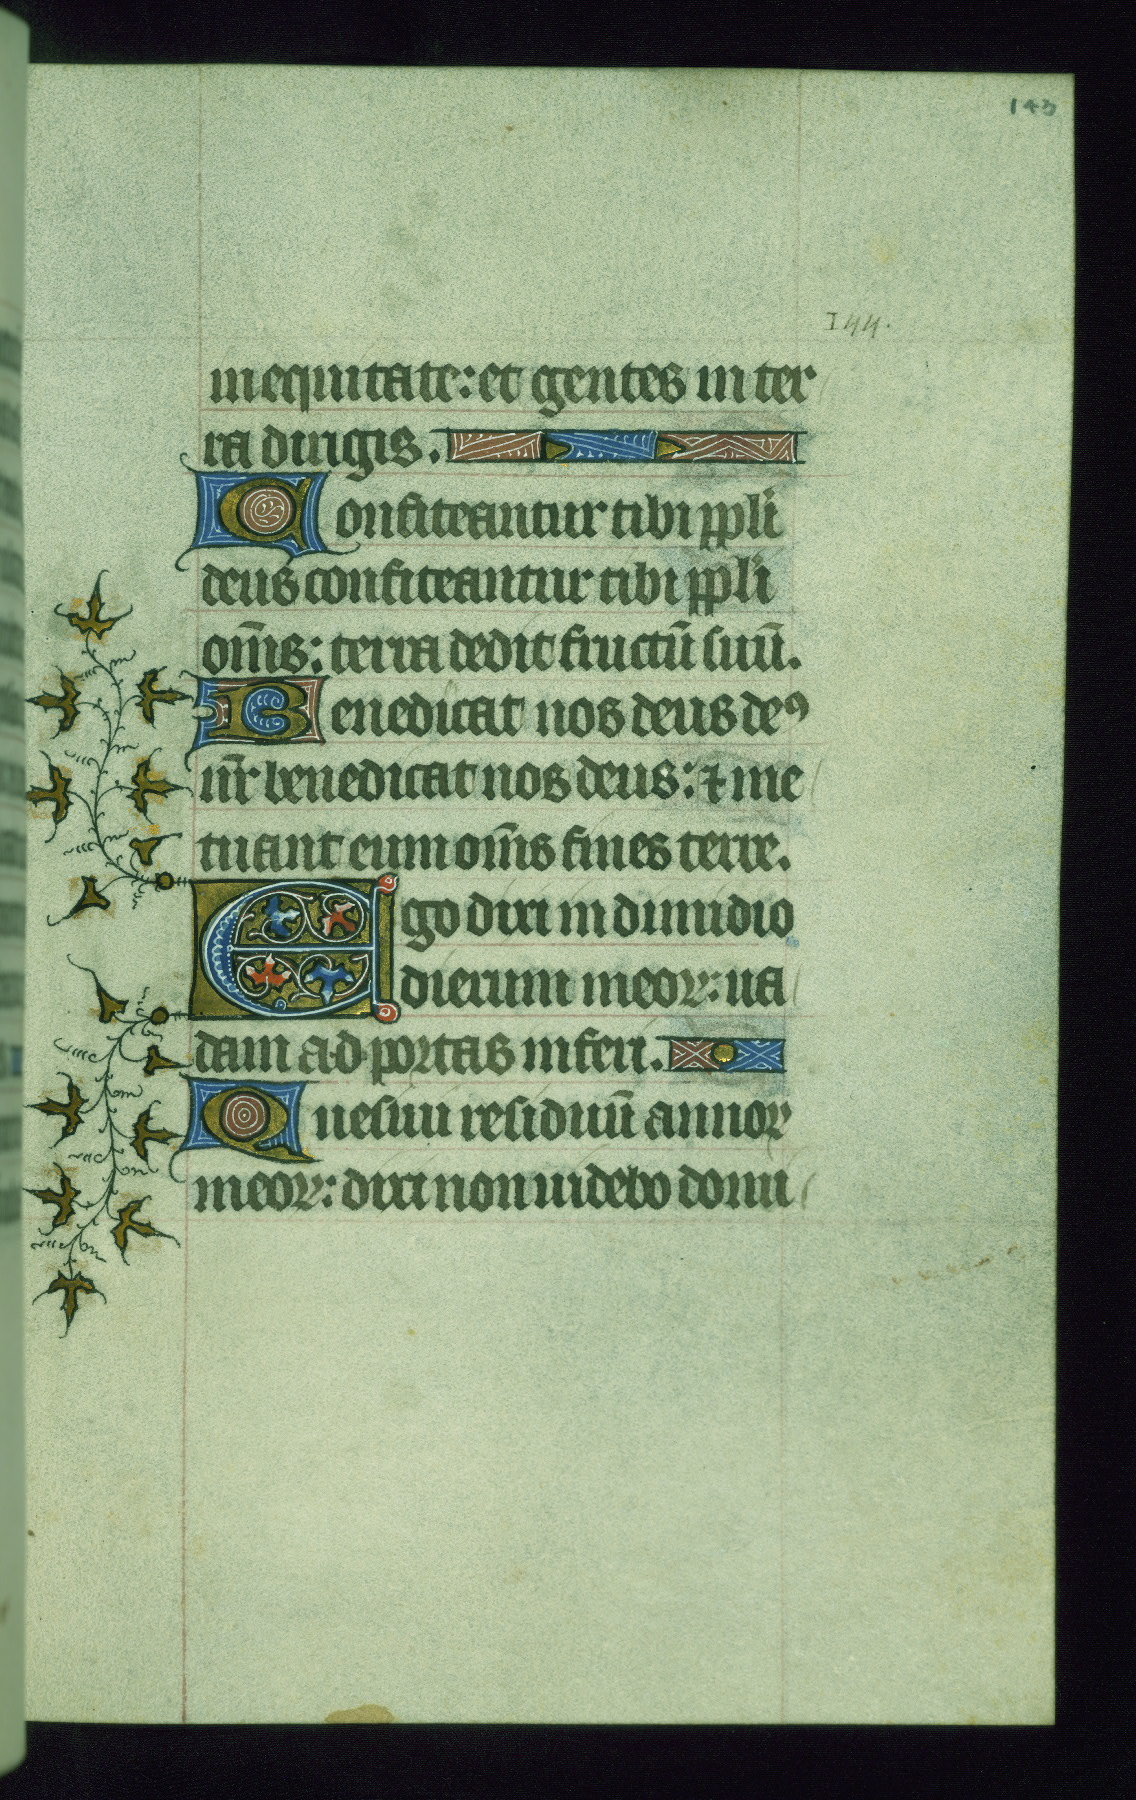 143
144.
in equitate: et gentes in ter
ra dirigis.
Confiteantur tibi ppli
deus confiteantur tibi ppli
om̅is: terra dedit fructū suū.
Benedicat nos deus deꝰ
nr̅ benedicat nos deus: ⁊ me
tuant eum om̅s fines terre.
Ego dixi in dimidio
dierum meoꝝ: ua
dam ad portas inferi.
Quesiui residuū annoꝝ
meoꝝ: dixi non uidebo domi